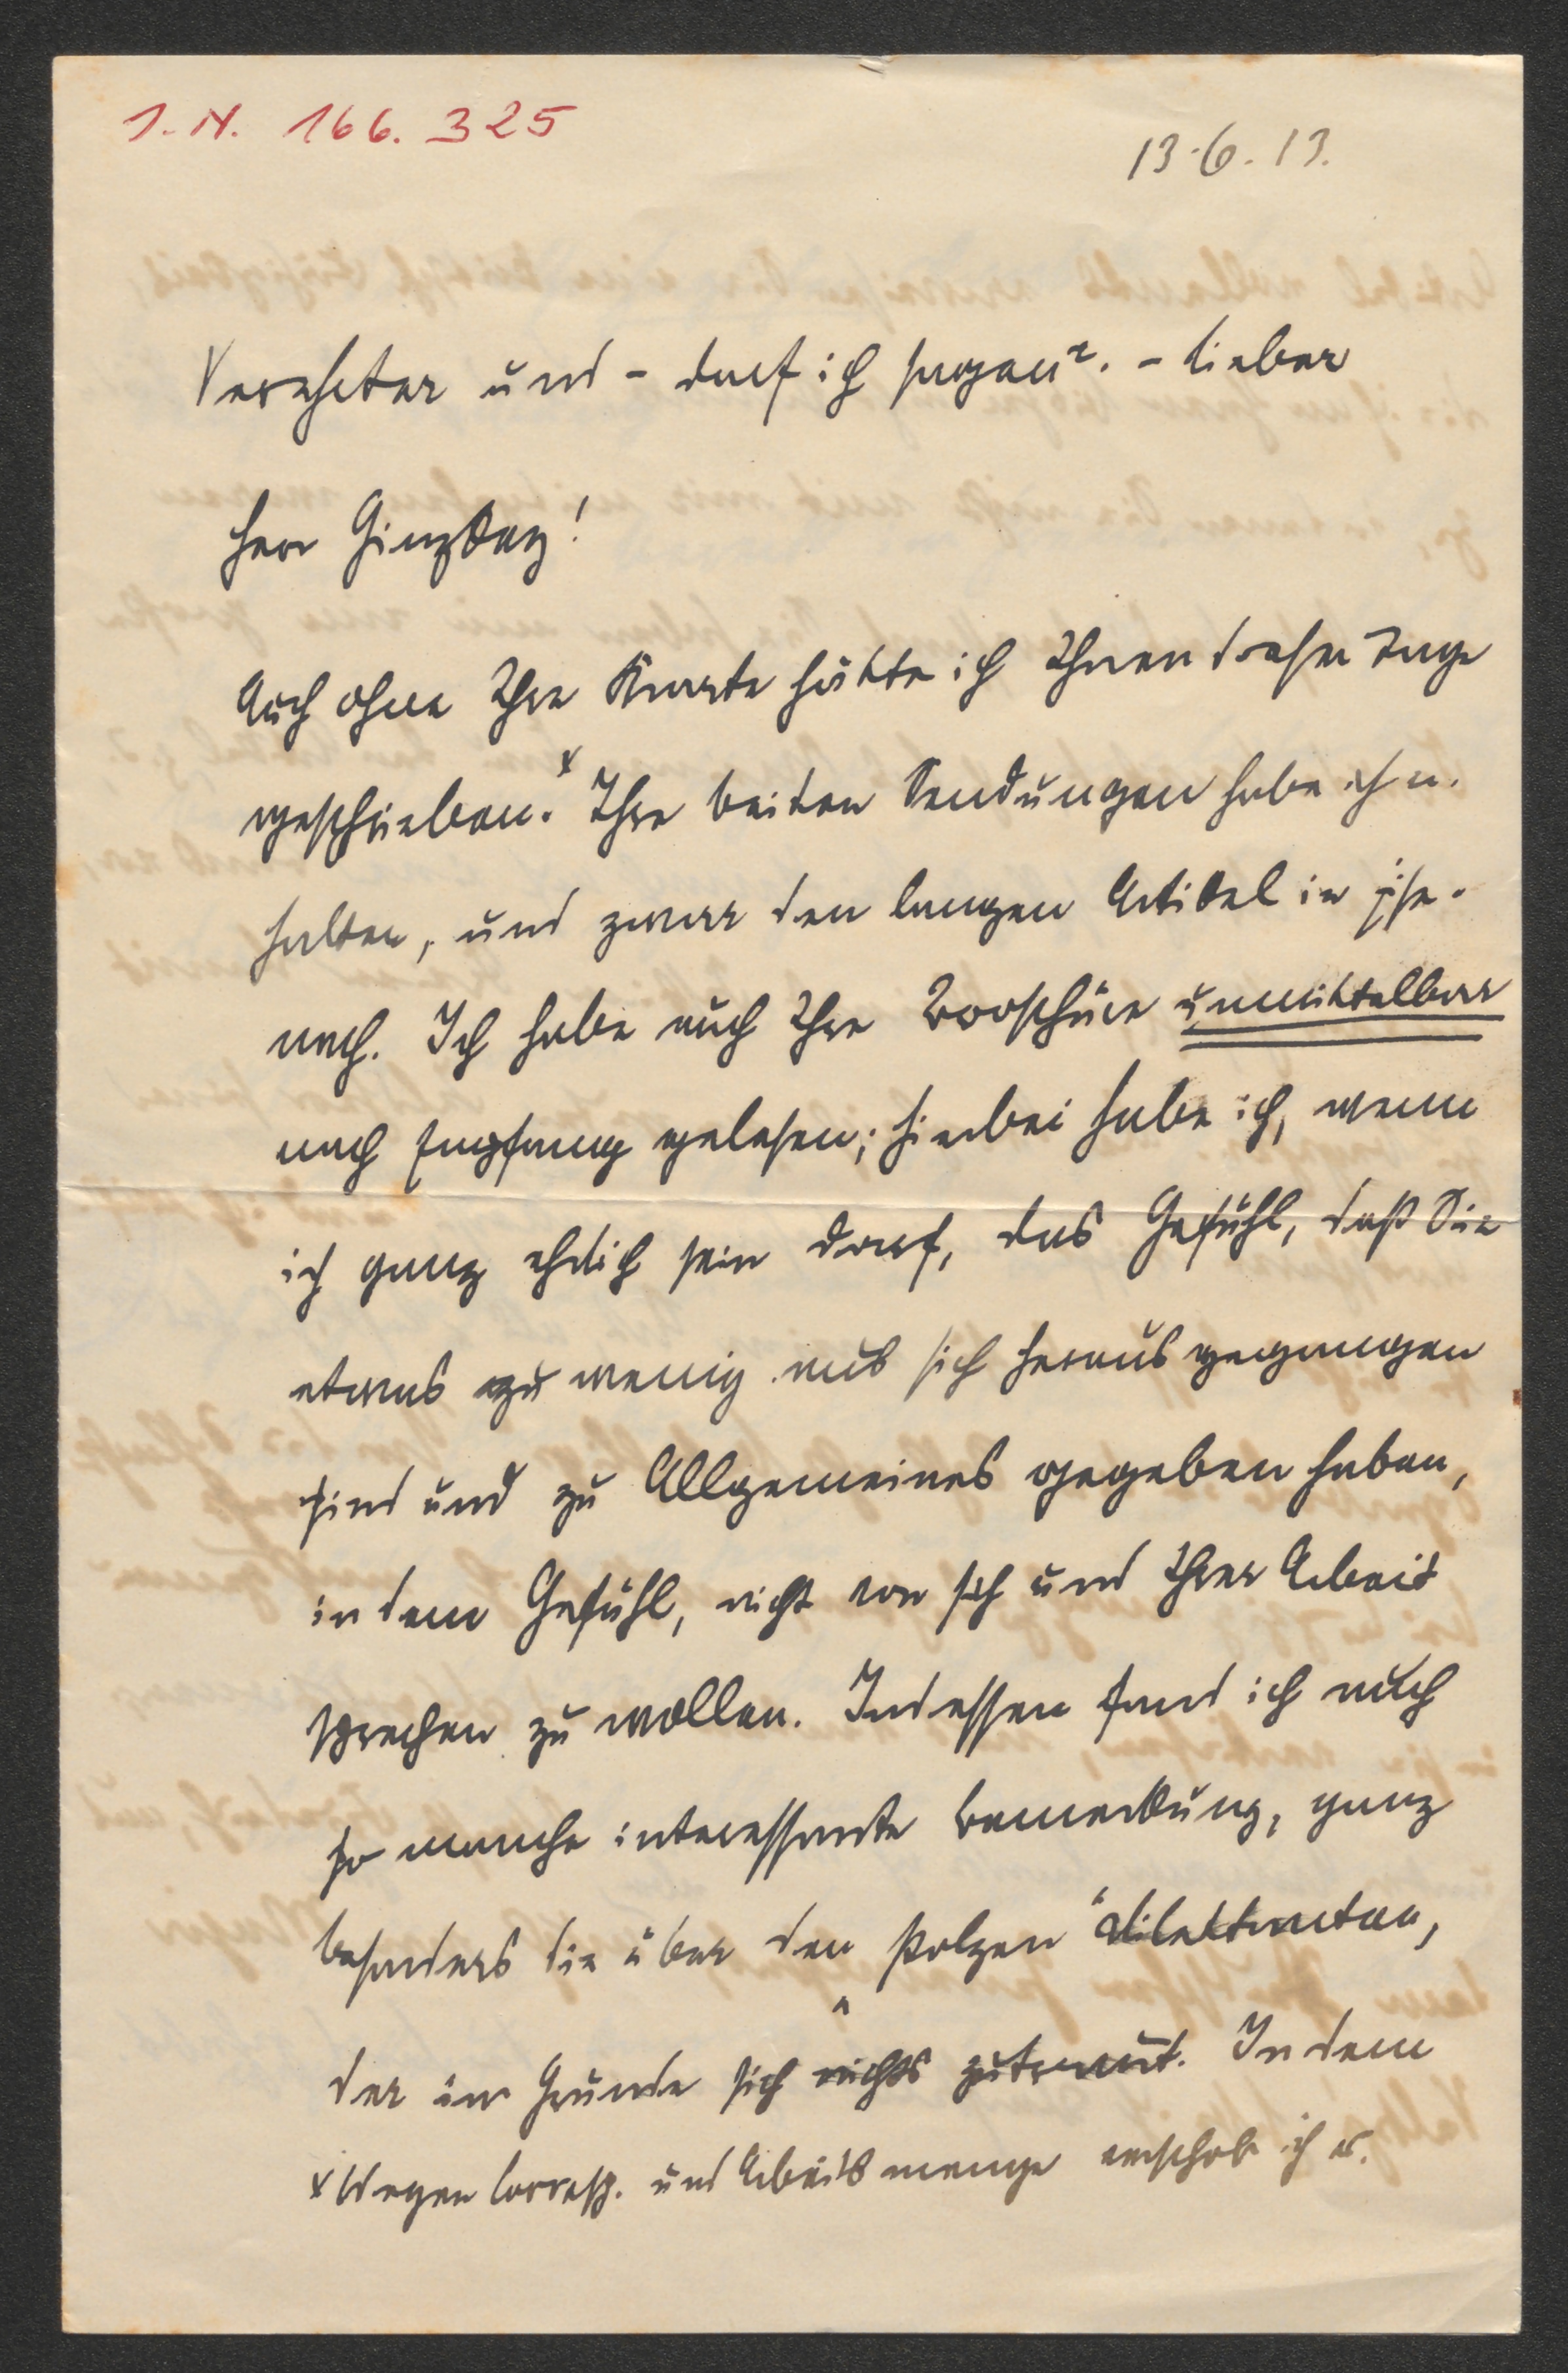 I. N. 166.325
13.6.13.
Verehrter und – darf ich sagen? – Lieber
Herr Ginzkey!
Auch ohne Ihre Karte hätte ich Ihnen dieser Tage
geschrieben.x Ihre beiden Sendungen habe ich er-
halten, und zwar den langen Artikel in
nach. Ich habe auch Ihre Broschüre unmittelbar
nach Empfang gelesen; hierbei habe ich, wenn
ich ganz ehrlich sein darf, das Gefühl, daß Sie
etwas zu wenig aus sich heraus gegangen
sind und zu Allgemeines gegeben haben,
in dem Gefühl, nicht von sich und Ihrer Arbeit
sprechen zu wollen. Indessen fand ich auch
so manche interessante Bemerkung, ganz
besonders die über den stolzen Dilettanten,
der im Grunde sich nichts zutraut. In dem
x Wegen Corresp. und Arbeitsmenge verschob ich es.